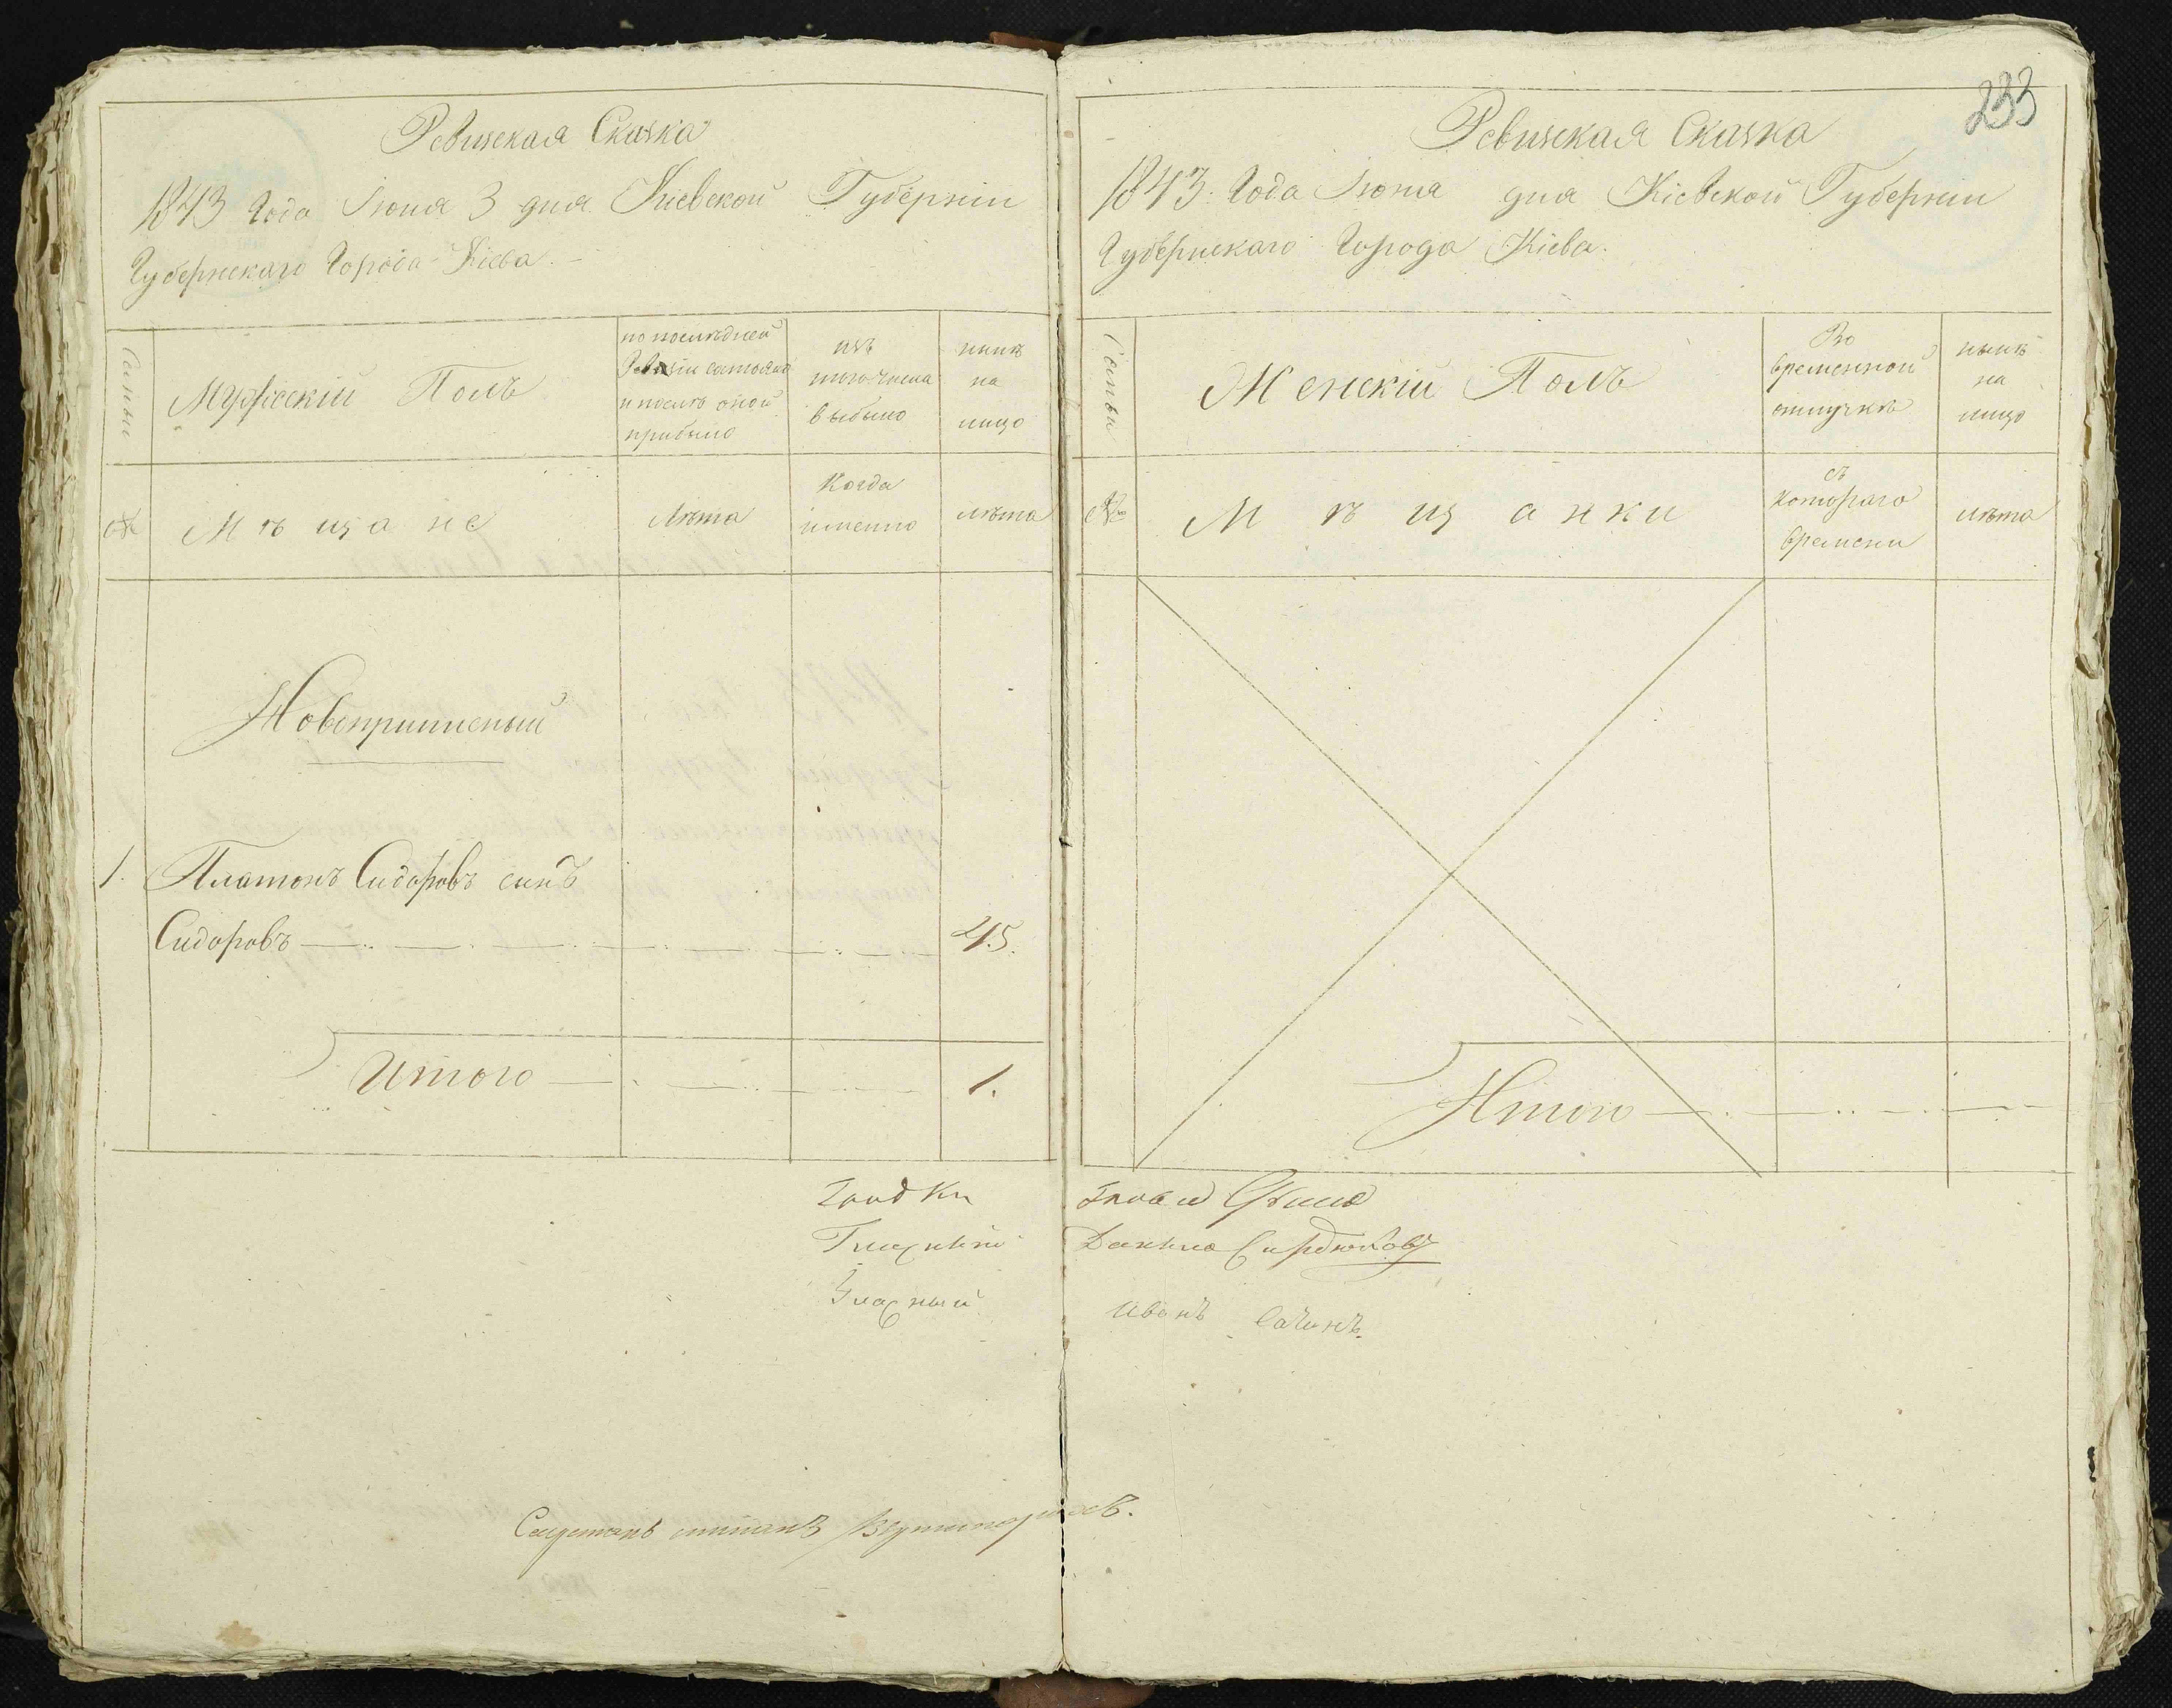 Ревизская Сказка
1843 Года Июня 3 дня Киевской Губерніи
Губернскаго Города Кіева. –
Семьи
Мужескій Полъ
по послѣдней
Ревизіи состояло
и послѣ оной
прибыло
изъ
того числа
выбыло
нынѣ
на
лицо
№
Мѣщане
Лѣта
Когда
именно
лѣта
Новоприписный
1. Платонъ Сидоровъ сынъ
Сидоровъ 45.
Итого 1.
Глас ный
Гласный
233
Ревизская Сказка
1843. Года Июня дня Кіевской Губерніи
Губернскаго Города Кіева.
Семьи
Женскій Полъ
Во
временной
отлучкѣ
нынѣ
на
лицо
№
Мѣщанки
съ
котораго
времени
лѣта
Итого
Данило Сердюковъ
Иванъ